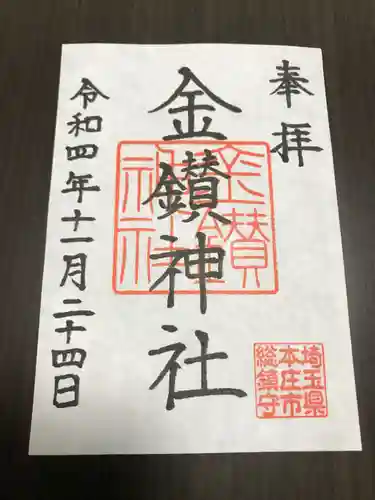 奉拝
金鑚神社
令和四年十一月二十四日
金鑚神社
埼玉県
本庄市
総鎮守